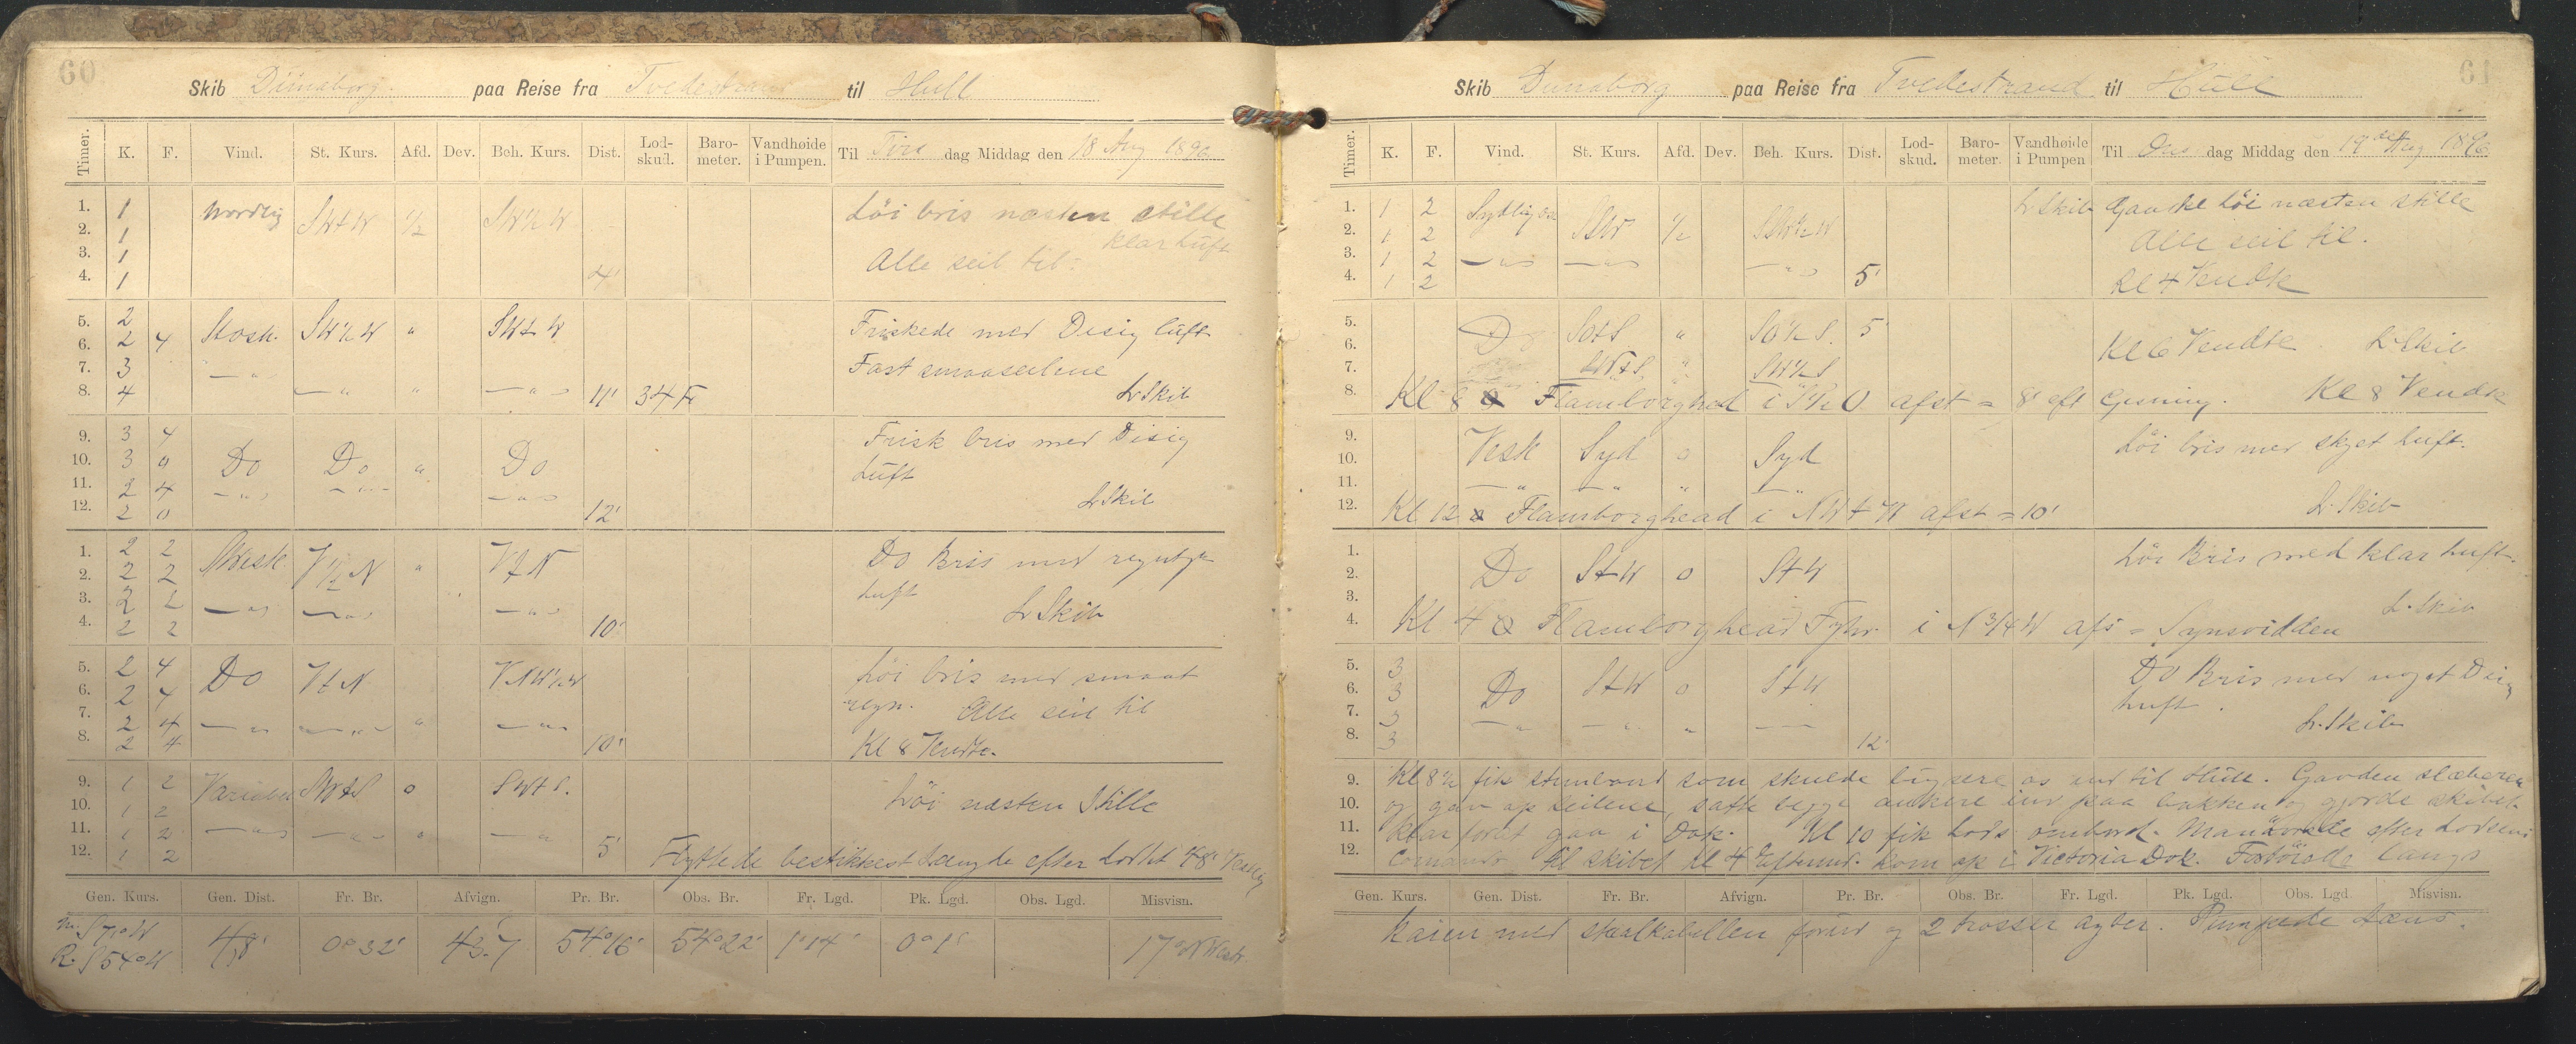 60
Skib Dünaborg. paa Reise fra Tvedestrand til Hull
Timer. K. F. Vind. St. Kurs. Afd. Dev. Beh. Kurs. Dist. Lod-skud. Baro-meter. Vandhøide i Pumpen. Til Tirs dag Middag den 18 Aug 1896
1. 1 Nordlig SWtW ½ SW½W Löi bris næsten stille
2. 1 klar luft
3. 1 Alle seil til.
4. 1 4'
5. 2 SW½W " SWtW Friskede med Disig luft
6. 2 4
7. 3 Fast smaaseilene
8. 4 11' 34 Fv L Skib
9. 3 4 Frisk bris med Disig
10. 3 0 Do Do " Do Luft
11. 2 4 L Skib
12. 2 0 12'
1. 2 2 V½N " VtN Do Bris med
2. 2 2 luft
3. 2 2 L Skib
4. 2 2 10'
5. 2 4 Do VtN VNW½W Löi bris med smaat
6. 2 4 regn. Alle seil til
7. 2 4
8. 2 4 10' Kl 8 Vendte.
9. 1 2 Variabel SWtS 0 SWtS. Löi næsten Stille
10. 1 2
11. 1 2
12. 1 2 5' Flyttede bestikkest Længde efter Loddet 48' Vestlig
Gen. Kurs. Gen. Dist. Fr. Br. Afvign. Pr. Br. Obs. Br. Fr. Lgd. Pk. Lgd. Obs. Lgd. Misvisn.
m. S71°W
R. S54°W 48' 0° 32' 43.7 54°16' 54°22' 1°14' 0°1' 17°
61
Skib Dunaborg paa Reise fra Tvedestrand til Hull
Timer. K. F. Vind. St. Kurs. Afd. Dev. Beh. Kurs. Dist. Lod-skud. Baro-meter. Vandhøide i Pumpen Til Ons dag Middag den 19de Aug 1896
1. 1 2 Sydlig SSW ½ SSW½W L Skib Ganske Löi næsten stille
2. 1 2 Alle seil til.
3. 1 2
4. 1 2 5' Kl 4 Vendte
5. Do SOtS " SO½S. 5
6. Kl 6 Vendte L Skib
7. SWtS " SW½S
8. Kl 8 Flamborghed i S½O afst = 8' eft Gisning. Kl 8 Vendte
9. Vesk Syd 0 Syd Löi bris med skyet luft.
10.
11.
12. Kl 12 Flamborghead i NWtW afst = 10' L. Skib
1. Löi Bris med klar luft.
2. Do StW 0 StW
3. L. Skib
4. Kl 4 Flamborghead Fyhr i N 3/4 W afs = Synsvidden
5. 3 Do Bris med noget Disig
6. 3 Do StW 0 StW luft.
7. 3 L. Skib
8. 3 12'
9. Kl 8½ fik som skulde bugsere os ind til Hull. Gav den slæberen
10. og gav op seilene, satte begge ankere ind paa bakken og gjorde skibet
11. klar forat gaa i Dok. Kl 10 fik Lods ombord. Manövrerede efter Lodsens
12. Comando til skibet Kl 4 Efterm. kom op i Victoria Dok. Fortöiede langs
Gen. Kurs. Gen. Dist. Fr. Br. Afvign. Pr. Br. Obs. Br. Fr. Lgd. Pk. Lgd. Obs. Lgd. Misvisn.
kaien med staalkabellen forud og 2 trosser agter. Pumpede læns.